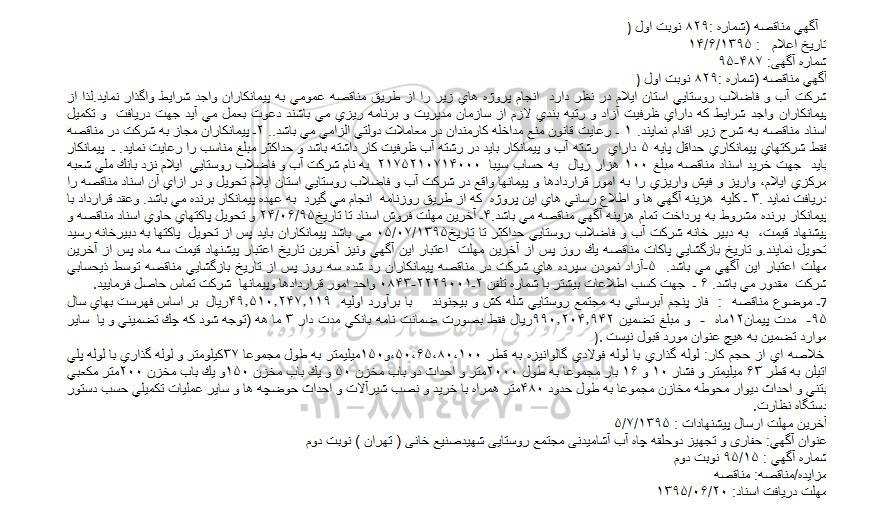 آگهي مناقصه (شماره :۸۲۹ نوبت اول (
تاريخ اعلام : ۱۴/۶/۱۳۹۵
شماره آگهي: ۴۸۷-۹۵
آگهي مناقصه (شماره :۸۲۹ نوبت اول (
شركت آب و فاضلاب روستايي استان ايلام در نظر دارد انجام پروژه هاي زير را از طريق مناقصه عمومي به پيمانكاران واجد شرايط واگذار نمايد.لذا از
پيمانكاران واجد شرايط كه داراي ظرفيت آزاد و رتبه بندي لازم از سازمان مديريت و برنامه ريزي مي باشند دعوت بعمل مي آيد جهت دريافت و تكميل
اسناد مناقصه به شرح زير اقدام نمايند. ۱ - رعايت قانون منع مداخله كارمندان در معاملات دولتي الزامي مي باشد.. ۲- پيمانكاران مجاز به شركت در مناقصه
فقط شركتهاي پيمانكاري حداقل پايه ۵ داراي رشته آب و پيمانكار بايد در رشته آب ظرفيت كار داشته باشد و حداكثر مبلغ مناسب را رعايت نمايد. - پيمانكار
بايد جهت خريد اسناد مناقصه مبلغ ۱۰۰ هزار ريال به حساب سيبا ۲۱۷۵۲۱۰۷۱۴۰۰۰ به نام شركت آب و فاضلاب روستايي ايلام نزد بانك ملي شعبه
مركزي ايلام، واريز و فيش واريزي را به امور قراردادها و پيمانها واقع در شركت آب و فاضلاب روستايي استان ايلام تحويل و در ازاي آن اسناد مناقصه را
دريافت نمايد .۳ - كليه هزينه آگهي ها و اطلاع رساني هاي اين پروژه كه از طريق روزنامه انجام مي گيرد به عهده پيمانكار برنده مي باشد. وعقد قرارداد با
پيمانكار برنده مشروط به پرداخت تمام هزينه آگهي مناقصه مي باشد.۴- آخرين مهلت فروش اسناد تا تاريخ۲۴/۰۶/۹۵ و تحويل پاكتهاي حاوي اسناد مناقصه و
پيشنهاد قيمت، به دبير خانه شركت آب و فاضلاب روستايي حداكثر تا تاريخ۰۵/۰۷/۱۳۹۵ مي باشد پيمانكاران بايد پس از تحويل پاكتها به دبيرخانه رسيد
تحويل نمايند.و تاريخ بازگشايي پاكات مناقصه يك روز پس از آخرين مهلت اعتبار اين آگهي ونيز آخرين تاريخ اعتبار پيشنهاد قيمت سه ماه پس از آخرين
مهلت اعتبار اين آگهي مي باشد. ۵-آزاد نمودن سپرده هاي شركت در مناقصه پيمانكاران رد شده سه روز پس از تاريخ بازگشايي مناقصه توسط ذيحسابي
شركت مقدور مي باشد. ۶ - جهت كسب اطلاعات بيشتر با شماره تلفن ۲-۲۲۲۹۰۰۱-۰۸۴۳ واحد امور قراردادها وپيمانها شركت تماس حاصل فرماييد.
7- موضوع مناقصه : فاز پنجم آبرساني به مجتمع روستايي شله كش و بيجنوند با برآورد اوليه ۴۹,۵۱۰,۲۴۷,۱۱۹ريال بر اساس فهرست بهاي سال
۹۵- مدت پيمان۱۲ماه - و مبلغ تضمين ۹۹۰,۲۰۴,۹۴۲ريال فقط بصورت ضمانت نامه بانكي مدت دار ۳ ما هه (توجه شود كه چك تضميني و يا ساير
موارد تضمين به هيچ عنوان مورد قبول نيست .(
خلاصه اي از حجم كار: لوله گذاري با لوله فولادي گالوانيزه به قطر ۵۰،۶۵،۸۰،۱۰۰و۱۵۰ميليمتر به طول مجموعا ۳۷كيلومتر و لوله گذاري با لوله پلي
اتيلن به قطر ۶۳ ميليمتر و فشار ۱۰ و ۱۶ بار مجموعا به طول ۲۰۰۰متر و احداث دو باب مخزن ۵۰ و يك باب مخزن ۱۵۰و يك باب مخزن ۲۰۰متر مكعبي
بتني و احداث ديوار محوطه مخازن مجموعا به طول حدود ۴۸۰متر همراه با خريد و نصب شيرآلات و احداث حوضچه ها و ساير عمليات تكميلي حسب دستور
دستگاه نظارت.
آخرين مهلت ارسال پيشنهادات : ۵/۷/۱۳۹۵
عنوان آگهي: حفاری و تجهیز دوحلقه چاه آب آشامیدنی مجتمع روستایی شهیدصنیع خانی ( تهران ) نوبت دوم
شماره آگهي : ۹۵/۱۵ نوبت دوم
مزايده/مناقصه: مناقصه
مهلت دريافت اسناد: ۱۳۹۵/۰۶/۲۰
۰۲۱-۸۸۳۴۹۶۷۰-۵